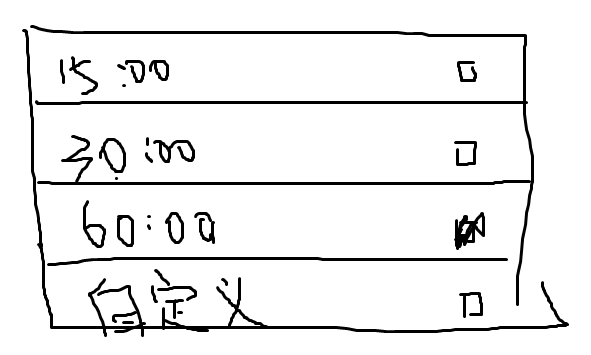 15:00
30:00
60:00
自定义